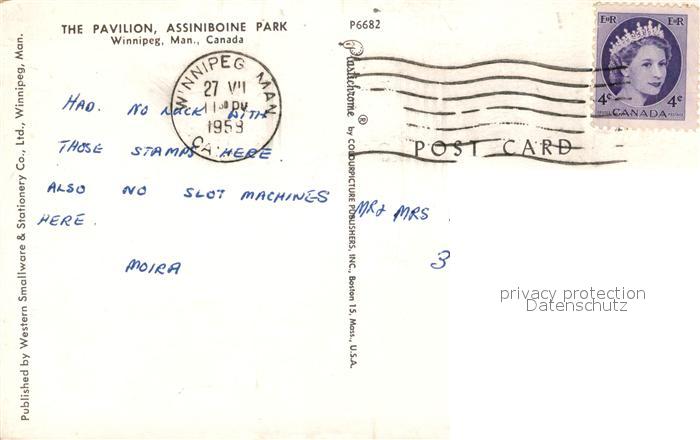 THE PAVILION, ASSINIBOINE PARK
Winnipeg, Man., Canada
P6682
WINNIPEG MAN
27 VII
11 30 PM
1959
CA
E II R E II R
4c 4c
CANADA
POST CARD
HAD. NO LUCK WITH
THOSE STAMPS HERE.
ALSO NO SLOT MACHINES
HERE.
MOIRA
MR & MRS.
3
privacy protection
Datenschutz
Published by Western Smallware & Stationery Co., Ltd., Winnipeg, Man.
Plastichrome ® by COLOURPICTURE PUBLISHERS, INC., Boston 15, Mass., U.S.A.